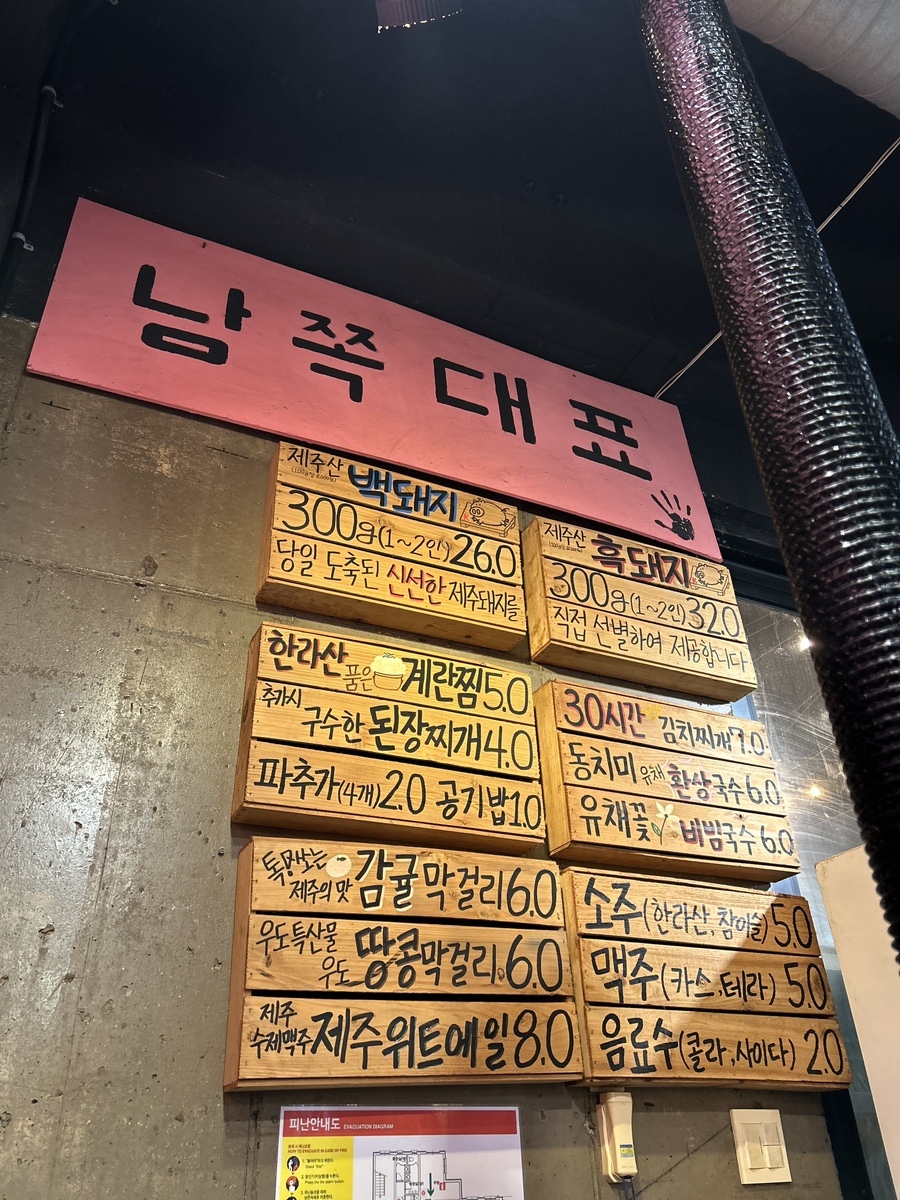 남쪽대표
제주산 백돼지
300g(1~2인) 26.0
당일 도축된 신선한 제주돼지를
제주산 흑돼지
300g(1~2인) 32.0
직접 선별하여 제공합니다
한라산 품은 계란찜 5.0
추가시 구수한 된장찌개 4.0
파추가(4개) 2.0 공기밥 1.0
30시간 김치찌개 7.0
동치미 유채 환상국수 6.0
유채꽃 비빔국수 6.0
톡쏘는 제주의 맛 감귤막걸리 6.0
우도특산물 우도 땅콩막걸리 6.0
제주 수제맥주 제주위트에일 8.0
소주(한라산, 참이슬) 5.0
맥주(카스, 테라) 5.0
음료수(콜라, 사이다) 2.0
피난안내도 EVACUATION DIAGRAM
HOW TO EVACUATE IN CASE OF FIRE